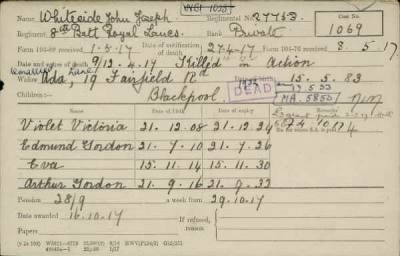 WC1 1025
Name Whiteside John Joseph
Regimental No. 27753
Case No. 1069
Regiment 8th Batt Royal Lancs.
Rank Private
Form 104-88 received 1.5.17
Date of notification of death 27.4.17
Form 104-76 received 8.5.17
Date and cause of death 9/12.4.17 Killed in Action
Ada, 19 Fairfield Rd
15.5.83
Children:— Blackpool.
DEAD
MA. 5850
Date of birth
Expires
Remarks
Violet Victoria 21.12.08 21.12.24
Edmund Gordon 21.7.10 21.7.26
Eva 15.11.14 15.11.30
Arthur Gordon 21.9.16 21.9.32
Pension 28/9 a week from 29.10.17
Date awarded 16.10.17
Papers